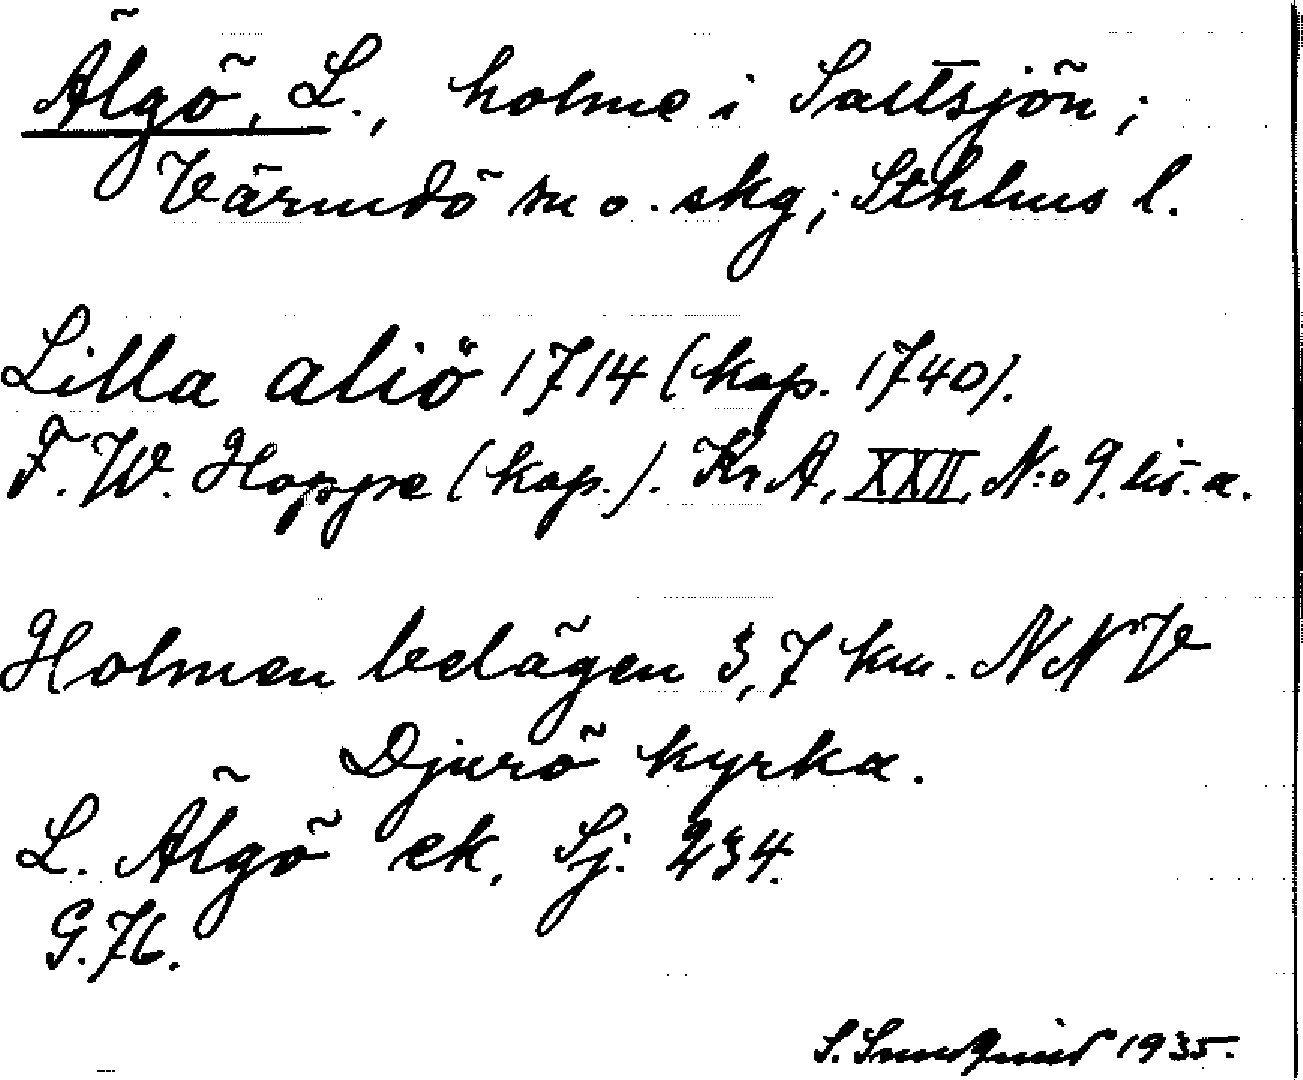 Älgö, L., holme i Saltsjön;
Värmdö sn o. skg; Sthlms l.
Lilla aliö 1714 (kop. 1740).
F. W. Hoppe (kop.). Kr A, XXII, N:o 9. lit. a.
Holmen belägen 3,7 km. NNV
Djurö kyrka.
L. Älgö ek. Sj. 234.
G. 76.
S. Sundqvist 1935.